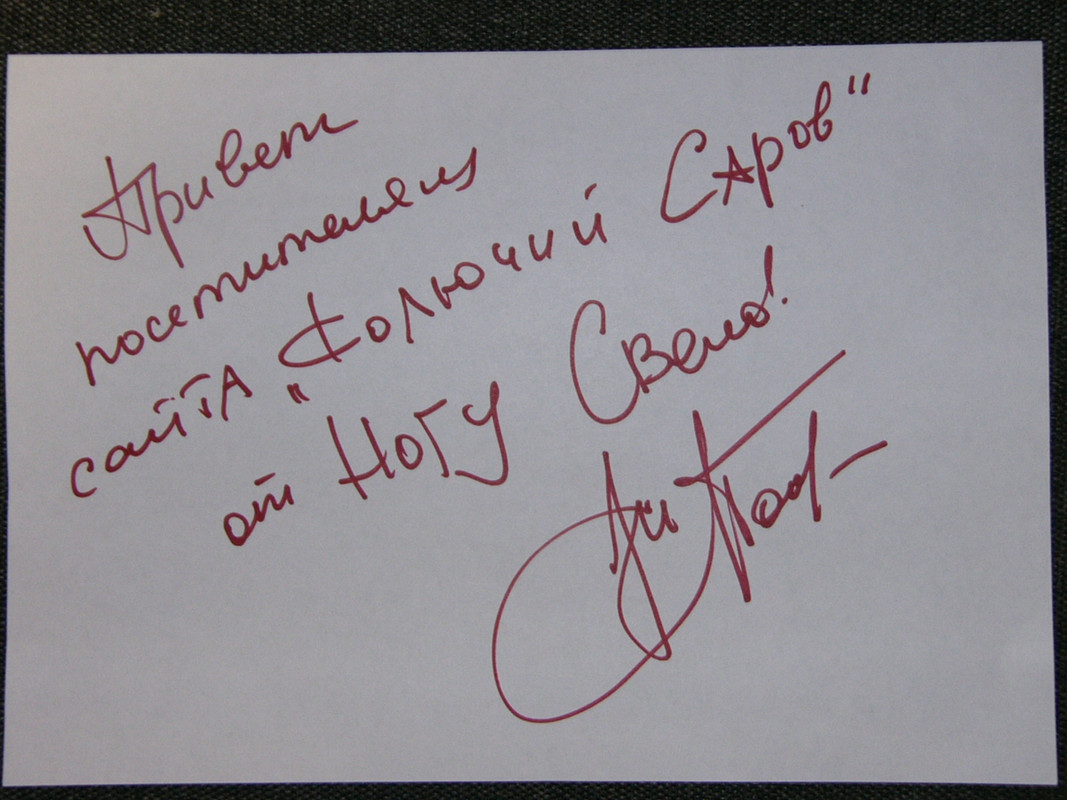 Привет
посетителям
сайта „Колючий Саров"
от Ногу Свело!